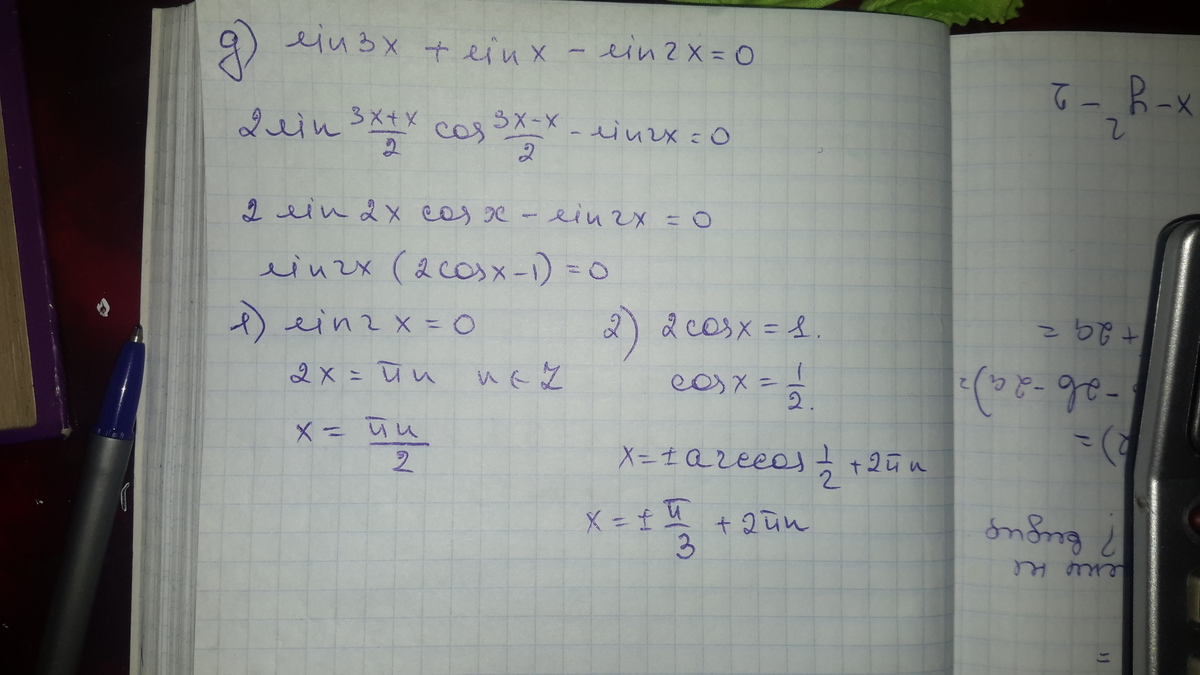 д) sin 3x + sin x - sin 2x = 0
2 sin (3x+x)/2 cos (3x-x)/2 - sin 2x = 0
2 sin 2x cos x - sin 2x = 0
sin 2x (2cos x - 1) = 0
1) sin 2x = 0
2x = πn n ∈ Z
x = πn/2
2) 2cos x = 1.
cos x = 1/2.
x = ± arccos 1/2 + 2πn
x = ± π/3 + 2πn
x - y² - 2
+ 2a =
- 2b - 2a) =
2) =
? видит
=